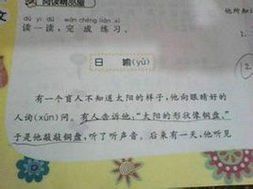 阅读精品屋
文
dú yi dú wán chéng liàn xí
读一读，完成练习。
他所知
1.
2
日 喻(yù)
有一个盲人不知道太阳的样子，他向眼睛好的
人询(xún)问。有人告诉他，“太阳的形状像铜盘。”
于是他敲敲铜盘，听了听声音。后来有一天，他听见